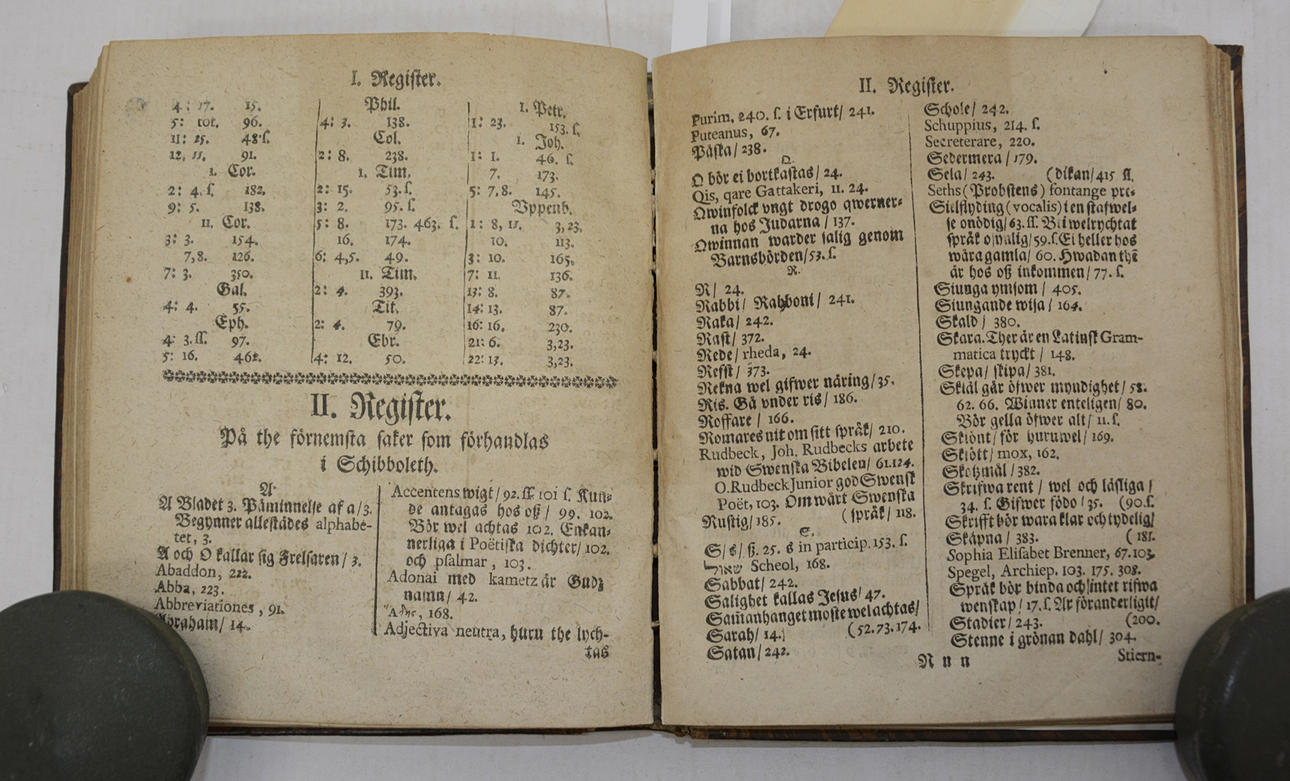 I. Register.
4: 17. 15.
5: tot. 96.
11: 25. 48 s.
12, 11, 91.
I. Cor.
2: 4. s. 182.
9: 5. 138.
II. Cor.
3: 3. 154.
7,8. 126.
7: 3. 350.
Gal.
4: 4. 55.
Eph.
4: 3. ff. 97.
5: 16. 462.
Phil.
4: 3. 138.
Col.
2: 8. 238.
I. Tim.
2: 15. 53. s.
3: 2. 95. s.
5: 8. 173. 463. s.
16. 174.
6: 4,5. 49.
II. Tim.
2: 4. 393.
Tit.
2: 4. 79.
Ebr.
4: 12. 50.
I. Petr.
1: 23. 153. s.
I. Joh.
1: 1. 46. s.
7. 173.
5: 7,8. 145.
Uppenb.
1: 8, 11. 3,23.
10. 113.
3: 10. 165.
7: 11. 136.
13: 8. 87.
14: 13. 87.
16: 16. 230.
21: 6. 3,23.
22: 13. 3,23.
II. Register.
På the förnemsta saker som förhandlas
i Schibboleth.
A
A Bladet 3. Påminnelse af a/3.
Begynner allestädes alphabe-
tet, 3.
A och O kallar sig Frelsaren/ 3.
Abaddon, 222.
Abba, 223.
Abbreviationes, 91.
Abraham/ 14.
Accentens wigt/ 92. ff 101 s. Kun-
de antagas hos oß/ 99. 102.
Bör wel achtas 102. Enkan-
nerliga i Poëtiska dichter/ 102.
och psalmar, 103.
Adonai med kametz är Gudz
namn/ 42.
168.
Adjectiva neutra, huru the lych-
tas
II. Register.
Purim, 240. s. i Erfurt/ 241.
Puteanus, 67.
Påska/ 238.
Q.
Q bör ei bortkastas/ 24.
Qis, qare Gattakeri, 11. 24.
Qwinfolck vngt drogo qwerner-
na hos Judarna/ 137.
Qwinnan warder salig genom
Barnsbörden/ 53. s.
R.
R/ 24.
Rabbi/ Rabboni/ 241.
Raka/ 242.
Rast/ 372.
Rede/ rheda, 24.
Refst/ 373.
Rekna wel gifwer näring/ 35.
Ris. Gå vnder ris/ 186.
Roffare/ 166.
Romares nit om sitt språk/ 210.
Rudbeck, Joh. Rudbecks arbete
wid Swenska Bibelen/ 61.124.
O. Rudbeck Junior god Swensk
Poët, 103. Om wårt Swenska
Rustig/ 185. (språk/ 118.
S.
S/ s/ ß. 25. s in particip. 153. s.
שאול Scheol, 168.
Sabbat/ 242.
Salighet kallas Jesus/ 47.
Samanhanget moste wel achtas/
Sarah/ 14. (52.73.174.
Satan/ 242.
Schole/ 242.
Schuppius, 214. s.
Secreterare, 220.
Sedermera/ 179.
Sela/ 243. (dikan/ 415 ff.
Seths (Probstens) fontange pre-
Sielflyding (vocalis) i en stafwel-
se onödig/ 63. ff. Bli welrychtat
språk omalig/ 59. s. Ei heller hos
wåra gamla/ 60. Hwadan the
är hos oß inkommen/ 77. s.
Siunga ymsom/ 405.
Siungande wisa/ 164.
Skald/ 380.
Skara. Ther är en Latinsk Gram-
matica tryckt/ 148.
Skepa/ skipa/ 381.
Skiäl går öfwer myndighet/ 58.
62. 66. Winner enteligen/ 80.
Bör gella öfwer alt/ 11. s.
Skiönt/ för huruwel/ 169.
Skiött/ mox, 162.
Skotzmål/ 382.
Skrifwa rent/ wel och läsliga/
34. s. Gifwer födo/ 35. (90. s.
Skrifft bör wara klar och tydelig/
Skåpna/ 383. (181.
Sophia Elisabet Brenner, 67. 103.
Spegel, Archiep. 103. 175. 308.
Språk bör binda och intet rifwa
wenskap/ 17. s. Är föranderligit/
Stadier/ 243. (200.
Stenne i grönan dahl/ 304.
N n n Stiern-